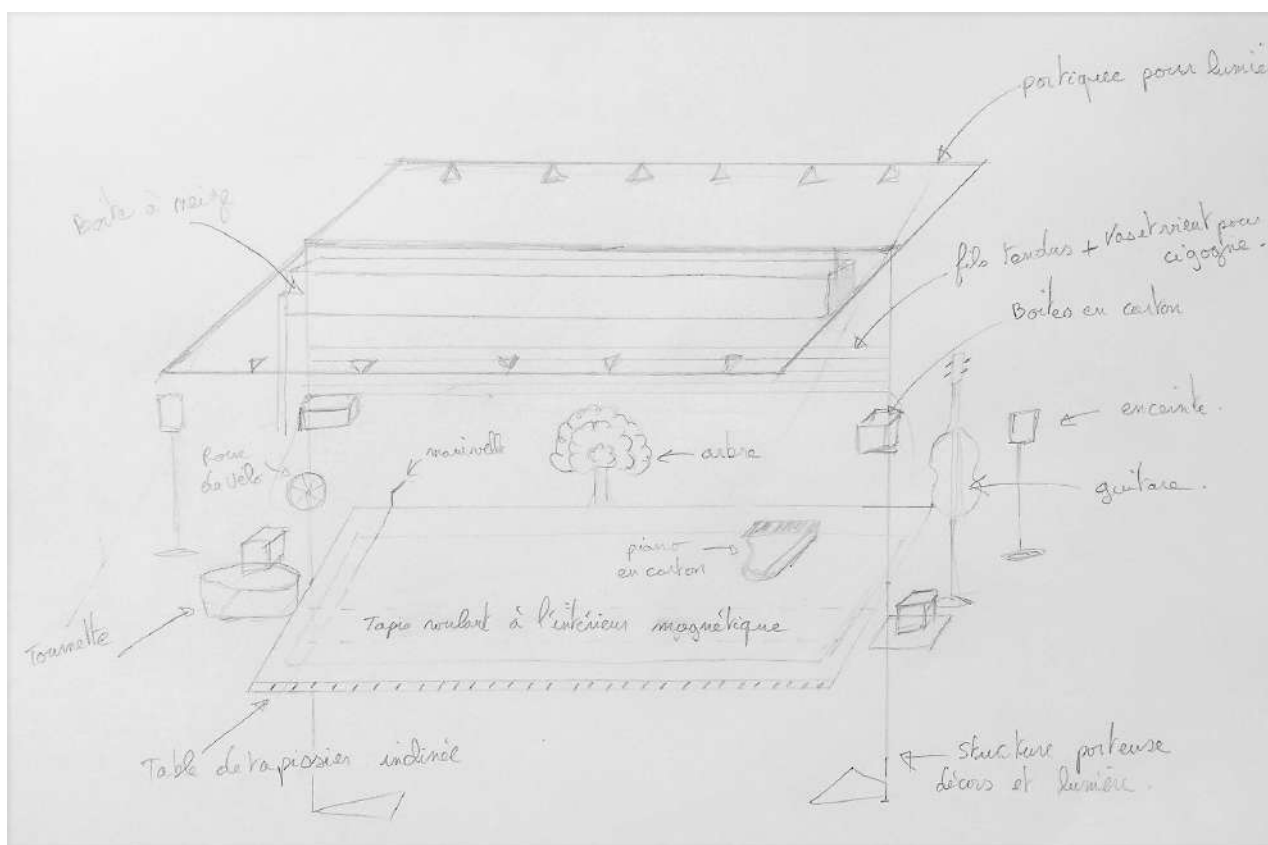 portiquee pour lumiè
Boîte à neige
fils tendus + Vas et vient pour
cigogne.
Boîtes en carton
enceinte.
pour
de vélo
manivelle
arbre
guitare.
piano
en carton
Tapis roulant à l'intérieur magnétique
Tournette
Table de tapissier inclinée
Structure porteuse
décors et lumière.